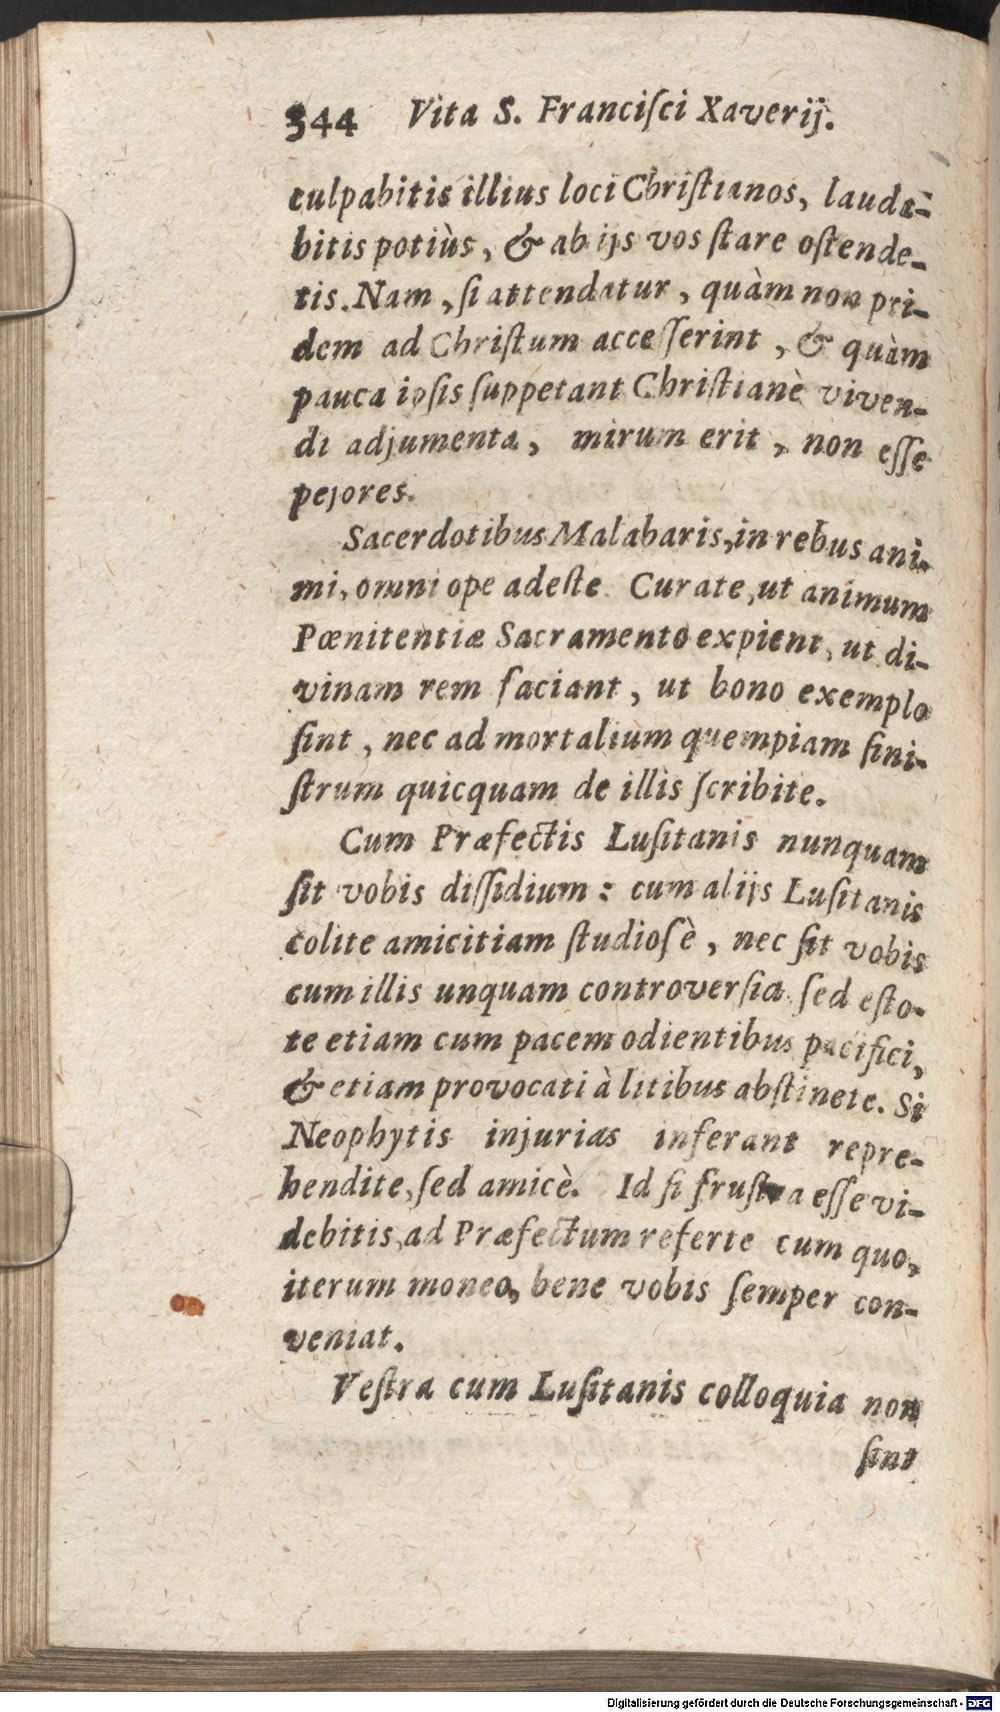 344 Vita S. Franciſci Xaverij.
culpabitis illius loci Chriſtianos, lauda-
bitis potiùs, & ab ijs vos ſtare oſtende-
tis. Nam, ſi attendatur, quàm non pri-
dem ad Chriſtum acceſſerint, & quàm
pauca ipſis ſuppetant Chriſtianè viven-
di adjumenta, mirum erit, non eſſe
pejores.
Sacerdotibus Malabaris, in rebus ani-
mi, omni ope adeſte. Curate, ut animum
Pœnitentiæ Sacramento expient, ut di-
vinam rem faciant, ut bono exemplo
ſint, nec ad mortalium quempiam ſini-
ſtrum quicquam de illis ſcribite.
Cum Præfectis Luſitanis nunquam
ſit vobis diſſidium: cum alijs Luſitanis
colite amicitiam ſtudioſè, nec ſit vobis
cum illis unquam controverſia. ſed eſto-
te etiam cum pacem odientibus pacifici,
& etiam provocati à litibus abſtinete. Si
Neophytis injurias inferant repre-
hendite, ſed amicè. Id ſi fruſtra eſſe vi-
debitis, ad Præfectum referte cum quo,
iterum moneo, bene vobis ſemper con-
veniat.
Veſtra cum Luſitanis colloquia non
ſint
Digitalisierung gefördert durch die Deutsche Forschungsgemeinschaft - DFG